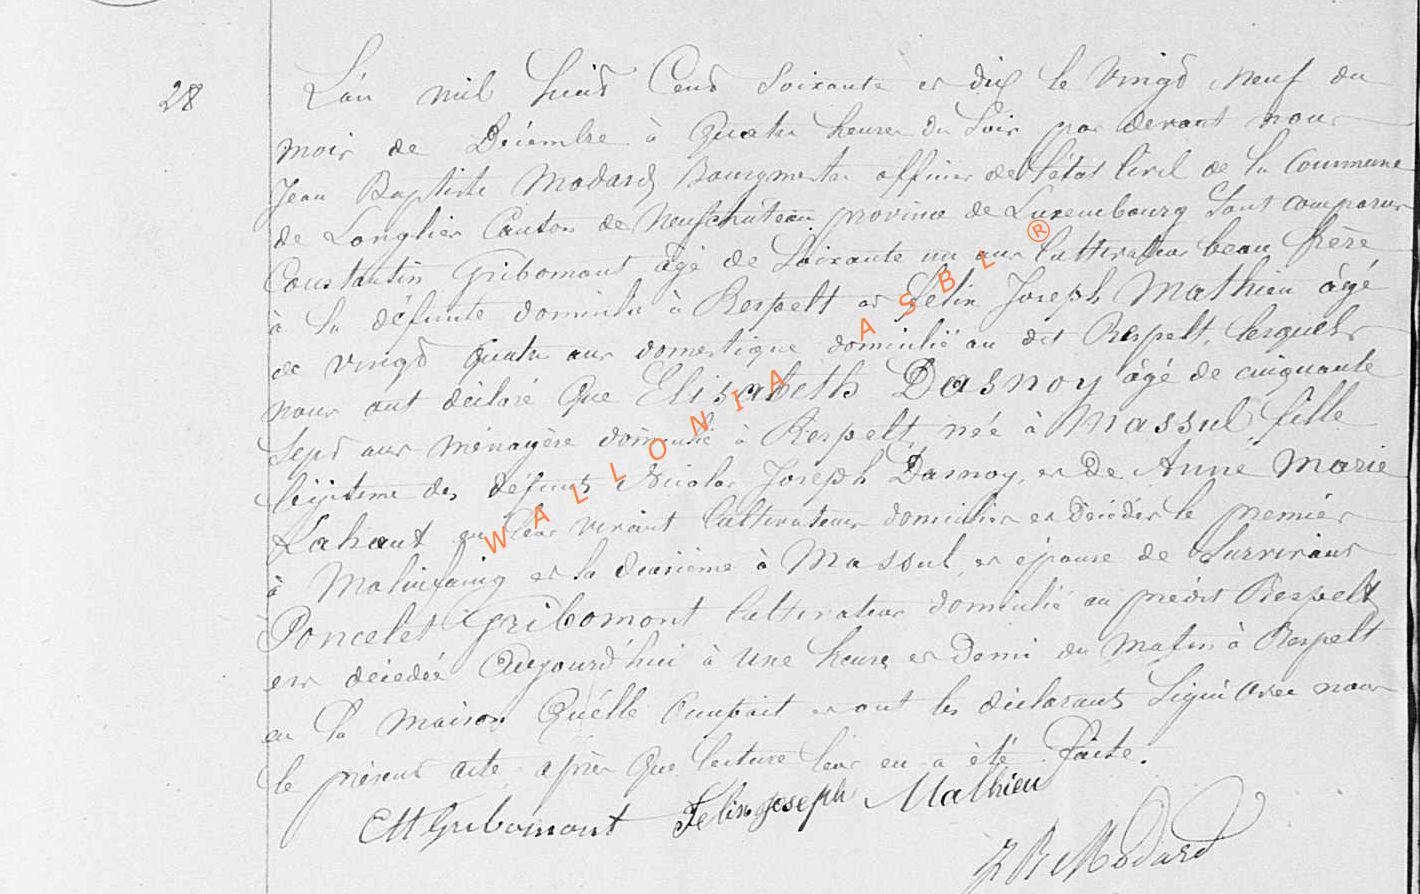 28
L'an mil huit Cent Soixante et dix le Vingt neuf du
mois de Décembre à Quatre heures du Soir par devant nous
Jean Baptiste Modard Bourgmestre officier de l'état Civil de la Commune
de Longlier Canton de Neufchâteau province de Luxembourg Sont Comparus
Constantin Gribomont âgé de Soixante un ans Cultivateur beau frère
à la défunte domicilié à Respelt et Félix Joseph Mathieu âgé
de vingt quatre ans domestique domicilié au dit Respelt, lesquels
nous ont déclaré Que Elisabeth Dasnoy âgé de cinquante
Sept ans ménagère domicilié à Respelt, née à Massul fille
légitime des défunts Nicolas Joseph Dasnoy, et De Anne Marie
Lahaut en leur vivant Cultivateurs domiciliés et Décédés le premier
à Molinfaing et la deuxième à Massul, et épouse de Survivant
Poncelet Gribomont Cultivateur domicilié au prédit Respelt
est décédée Aujourd'hui à Une heure et Demi du Matin à Respelt
en la maison Qu'elle Occupait et ont les déclarants Signé Avec nous
le présent acte après Que lecture leur en a été Faite.
Gribomont Félix joseph Mathieu
J B Modard
WALLONIA ASBL ®